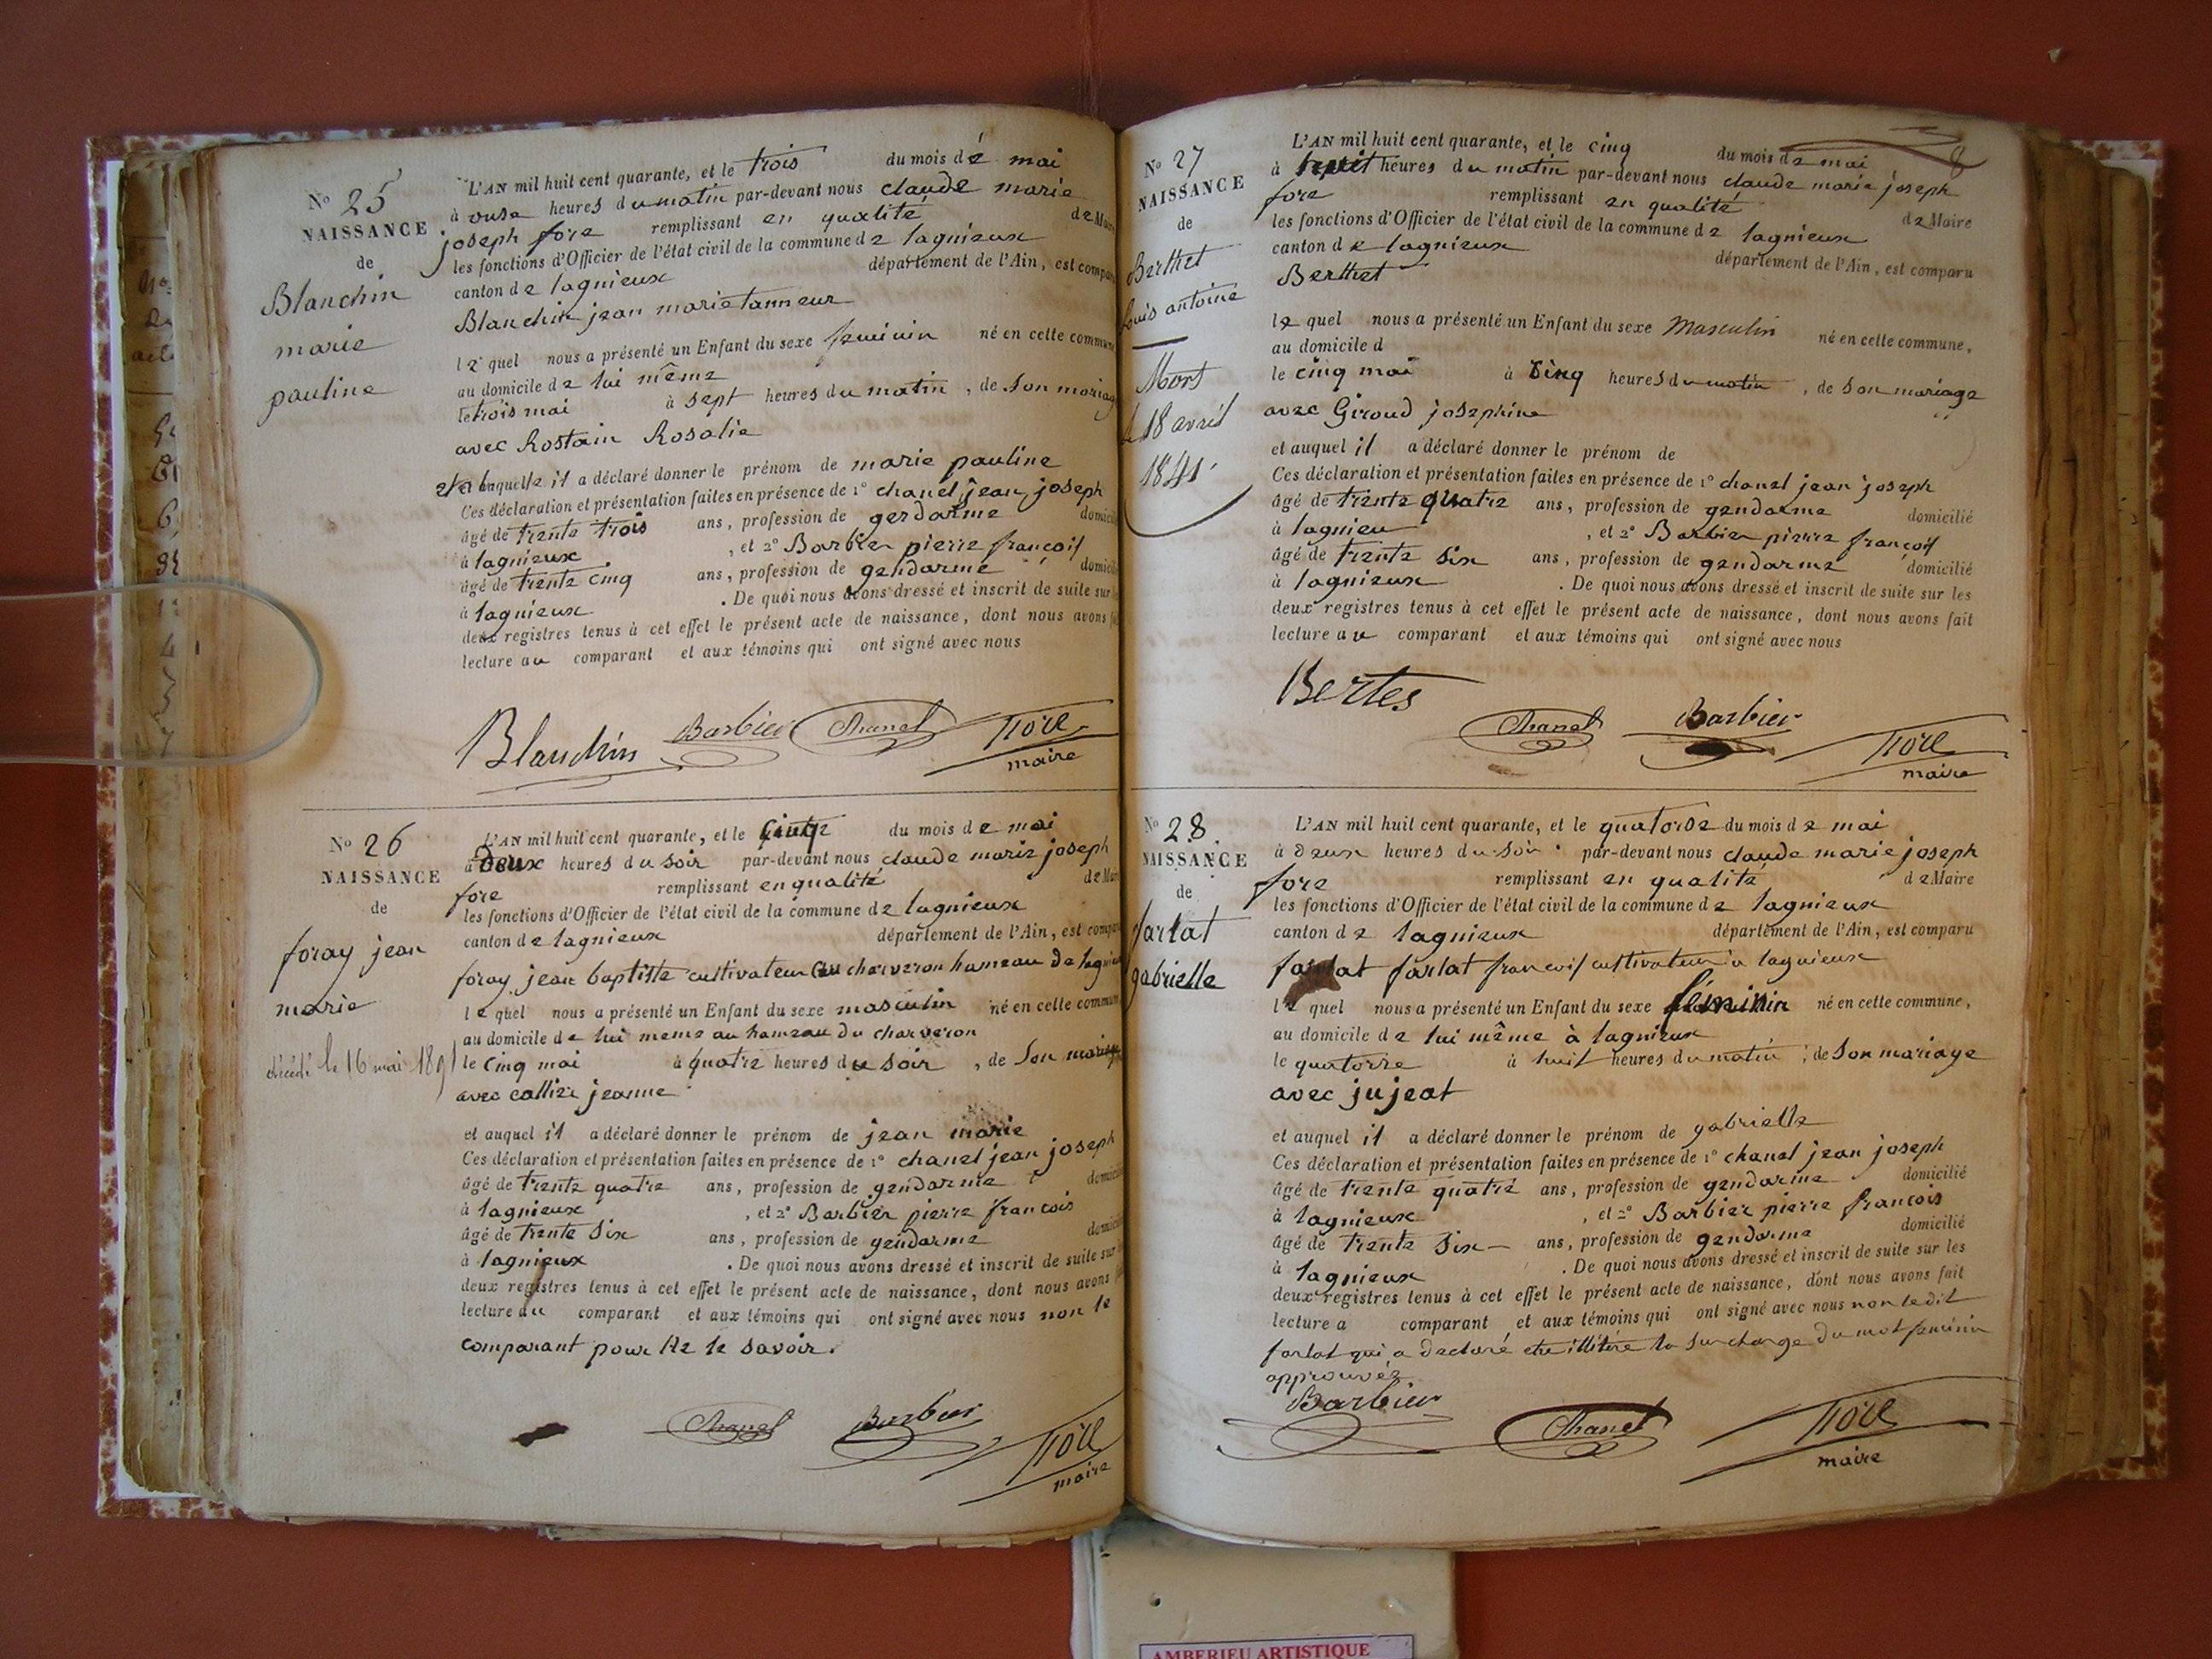 N° 25
NAISSANCE
de
Blanchin
marie
pauline
L'AN mil huit cent quarante, et le trois du mois de mai
à onse heures du matin par-devant nous claude marie
joseph fore remplissant en qualité de Maire
les fonctions d'Officier de l'état civil de la commune de lagnieux
canton de lagnieux département de l'Ain, est comparu
Blanchin jean marie tanneur
le quel nous a présenté un Enfant du sexe feminin né en cette commune
au domicile de lui même
le trois mai à sept heures du matin, de son mariage
avec Rostain Rosalie
et a laquelle il a déclaré donner le prénom de marie pauline
Ces déclaration et présentation faites en présence de 1° chanel jean joseph
âgé de trente trois ans, profession de gendarme domicilié
à lagnieux, et 2° Barbier pierre françois
âgé de trente cinq ans, profession de gendarme domicilié
à lagnieux. De quoi nous avons dressé et inscrit de suite sur les
deux registres tenus à cet effet le présent acte de naissance, dont nous avons fait
lecture au comparant et aux témoins qui ont signé avec nous
Blanchin Barbier Chanel fore
maire
N° 26
NAISSANCE
de
foray jean
marie
décédé le 16 mai 1891
L'AN mil huit cent quarante, et le cinq du mois de mai
à deux heures du soir par-devant nous claude marie joseph
fore remplissant en qualité de Maire
les fonctions d'Officier de l'état civil de la commune de lagnieux
canton de lagnieux département de l'Ain, est comparu
foray jean baptiste cultivateur au charveron hameau de lagnieux
le quel nous a présenté un Enfant du sexe masculin né en cette commune
au domicile de lui meme au hameau du charveron
le cinq mai à quatre heures du soir, de son mariage
avec jeanne
et auquel il a déclaré donner le prénom de jean marie
Ces déclaration et présentation faites en présence de 1° chanel jean joseph
âgé de trente quatre ans, profession de gendarme domicilié
à lagnieux, et 2° Barbier pierre francois
âgé de trente six ans, profession de gendarme domicilié
à lagnieux. De quoi nous avons dressé et inscrit de suite sur
deux registres tenus à cet effet le présent acte de naissance, dont nous avons
lecture au comparant et aux témoins qui ont signé avec nous non le
comparant pour ne le savoir.
Chanel Barbier fore
maire
8
N° 27
NAISSANCE
de
Berthet
louis antoine
Mort
le 18 avril
1841
L'AN mil huit cent quarante, et le cinq du mois de mai
à huit heures du matin par-devant nous claude marie joseph
fore remplissant en qualité de Maire
les fonctions d'Officier de l'état civil de la commune de lagnieux
canton de lagnieux département de l'Ain, est comparu
Berthet
le quel nous a présenté un Enfant du sexe Masculin né en cette commune,
au domicile d
le cinq mai à cinq heures du matin, de son mariage
avec Giroud josephine
et auquel il a déclaré donner le prénom de
Ces déclaration et présentation faites en présence de 1° chanel jean joseph
âgé de trente quatre ans, profession de gendarme domicilié
à lagnieu, et 2° Barbier pierre françois
âgé de trente six ans, profession de gendarme domicilié
à lagnieux. De quoi nous avons dressé et inscrit de suite sur les
deux registres tenus à cet effet le présent acte de naissance, dont nous avons fait
lecture au comparant et aux témoins qui ont signé avec nous
Bertes
Chanel Barbier fore
maire
N° 28
NAISSANCE
de
farlat
gabrielle
L'AN mil huit cent quarante, et le quatorse du mois de mai
à deux heures du soir par-devant nous claude marie joseph
fore remplissant en qualité de Maire
les fonctions d'Officier de l'état civil de la commune de lagnieux
canton de lagnieux département de l'Ain, est comparu
farlat farlat francois cultivateur a lagnieux
le quel nous a présenté un Enfant du sexe féminin né en cette commune,
au domicile de lui même à lagnieux
le quatorze à huit heures du matin, de son mariage
avec jujeat
et auquel il a déclaré donner le prénom de gabrielle
Ces déclaration et présentation faites en présence de 1° chanel jean joseph
âgé de trente quatre ans, profession de gendarme domicilié
à lagnieux, et 2° Barbier pierre francois
âgé de trente six ans, profession de gendarme domicilié
à lagnieux. De quoi nous avons dressé et inscrit de suite sur les
deux registres tenus à cet effet le présent acte de naissance, dont nous avons fait
lecture a comparant et aux témoins qui ont signé avec nous non ledit
farlat qui a declaré etre illitéré la surcharge du mot feminin
approuvée
Barbier Chanel fore
maire
AMBERIEU ARTISTIQUE